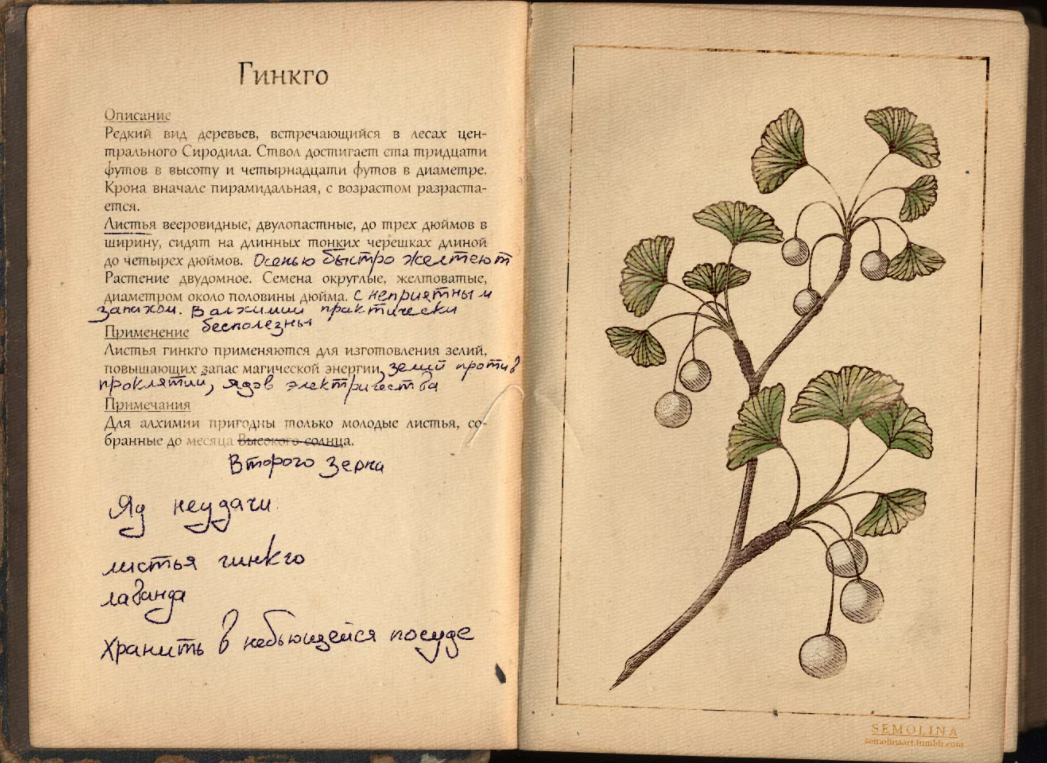 Гинкго
Описание
Редкий вид деревьев, встречающийся в лесах цен-
трального Сиродила. Ствол достигает ста тридцати
футов в высоту и четырнадцати футов в диаметре.
Крона вначале пирамидальная, с возрастом разраста-
ется.
Листья вееровидные, двулопастные, до трех дюймов в
ширину, сидят на длинных тонких черешках длиной
до четырех дюймов. Осенью быстро желтеют
Растение двудомное. Семена округлые, желтоватые,
диаметром около половины дюйма. с неприятным
запахом. В алхимии практически
бесполезны
Применение
Листья гинкго применяются для изготовления зелий,
повышающих запас магической энергии, зелий против
проклятий, ядов электричества
Примечания
Для алхимии пригодны только молодые листья, со-
бранные до месяца Высокого солнца.
Второго Зерна
Яд неудачи
листья гинкго
лаванда
Хранить в небьющейся посуде
SEMOLINA
semolinaart.tumblr.com